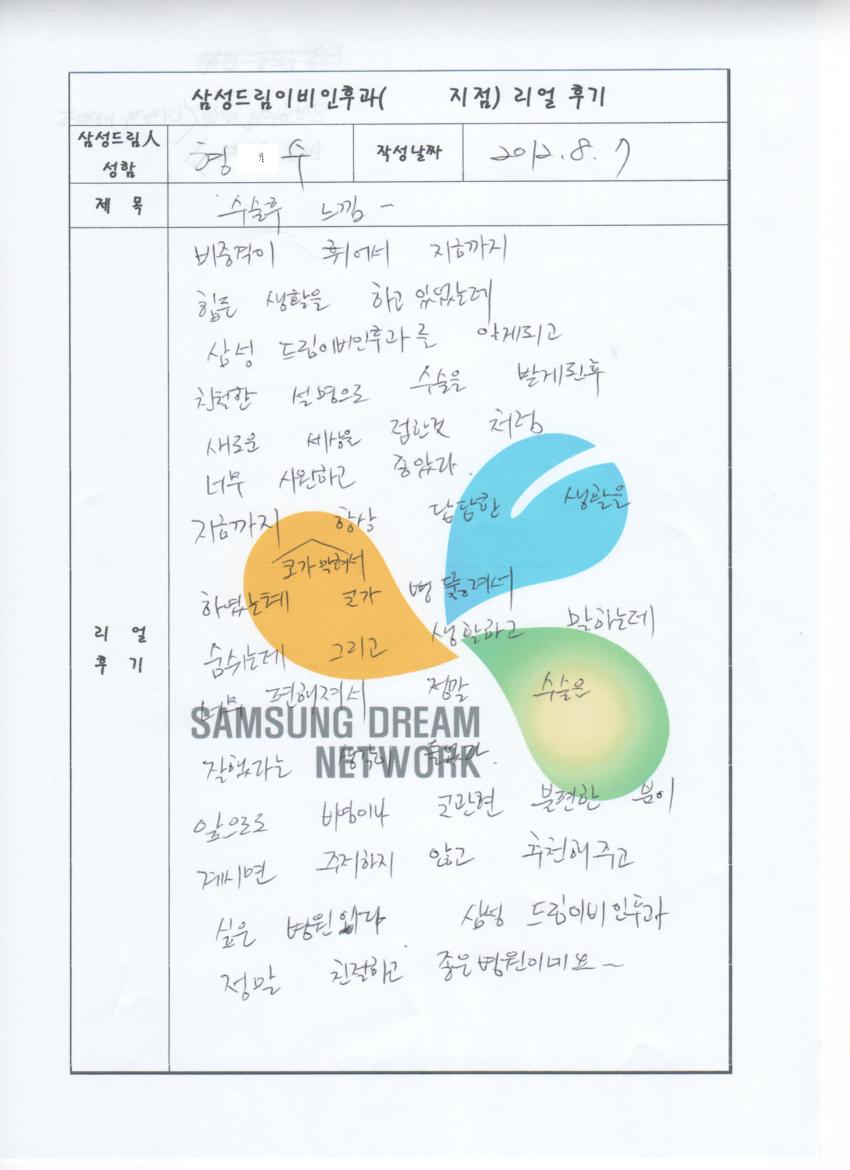 삼성드림이비인후과( 지점) 리얼 후기
삼성드림人 성함 형 수 작성날짜 2012.8.7
제 목 수술후 느낌 ~
비중격이 휘어서 지금까지
힘든 생활을 하고 있었는데
삼성 드림이비인후과를 알게되고
친절한 설명으로 수술을 받게된후
새로운 세상을 접한것 처럼
너무 시원하고 좋았다.
지금까지 항상 답답한 생활을
코가 막혀서
하였는데 코가 뻥 뚫려서
숨쉬는데 그리고 생활하고 말하는데
너무 편해져서 정말 수술은
SAMSUNG DREAM
잘했다는 생각이 들었다.
NETWORK
앞으로 비염이나 코관련 불편한 분이
계시면 주저하지 않고 추천해주고
싶은 병원입니다 삼성 드림이비인후과
정말 친절하고 좋은병원이네요~
리 얼
후 기